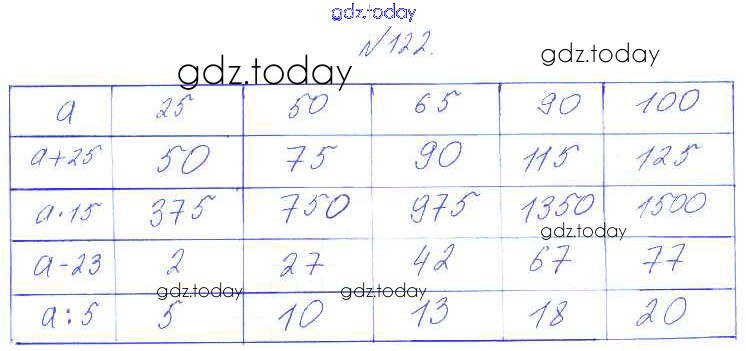 gdz.today
№122.
gdz.today
gdz.today
a 25 50 65 90 100
a+25 50 75 90 115 125
a·15 375 750 975 1350 1500
gdz.today
a-23 2 27 42 67 77
gdz.today gdz.today
a:5 5 10 13 18 20